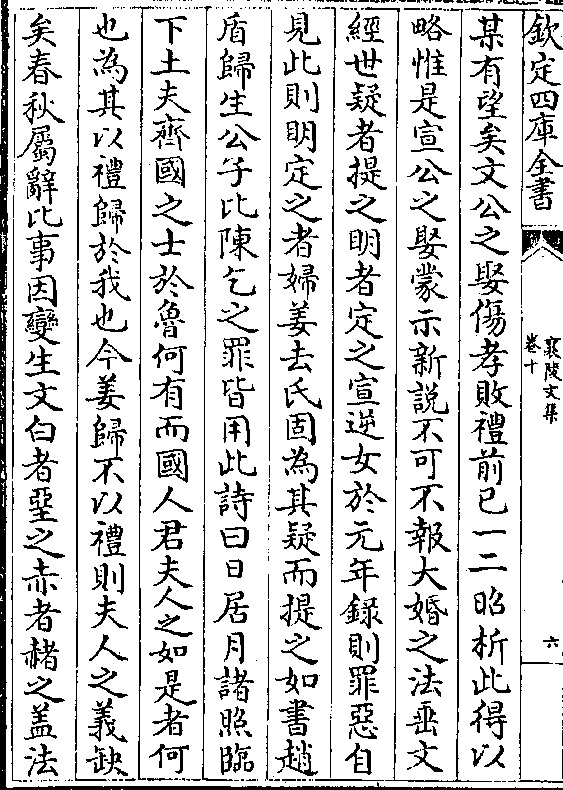 欽定四庫全書
襄陵文集
卷十
六
某有望矣文公之娶傷孝敗禮前已一二昭析此得以
略惟是宣公之娶蒙示新說不可不報大婚之法垂文
經世疑者提之明者定之宣逆女於元年錄則罪惡自
見此則明定之者婦姜去氏固為其疑而提之如書趙
盾歸生公子比陳乞之罪皆用此詩曰日居月諸照臨
下土夫齊國之士於魯何有而國人君夫人之如是者何
也為其以禮歸於我也今姜歸不以禮則夫人之義缺
矣春秋屬辭比事因變生文白者堊之赤者赭之蓋法